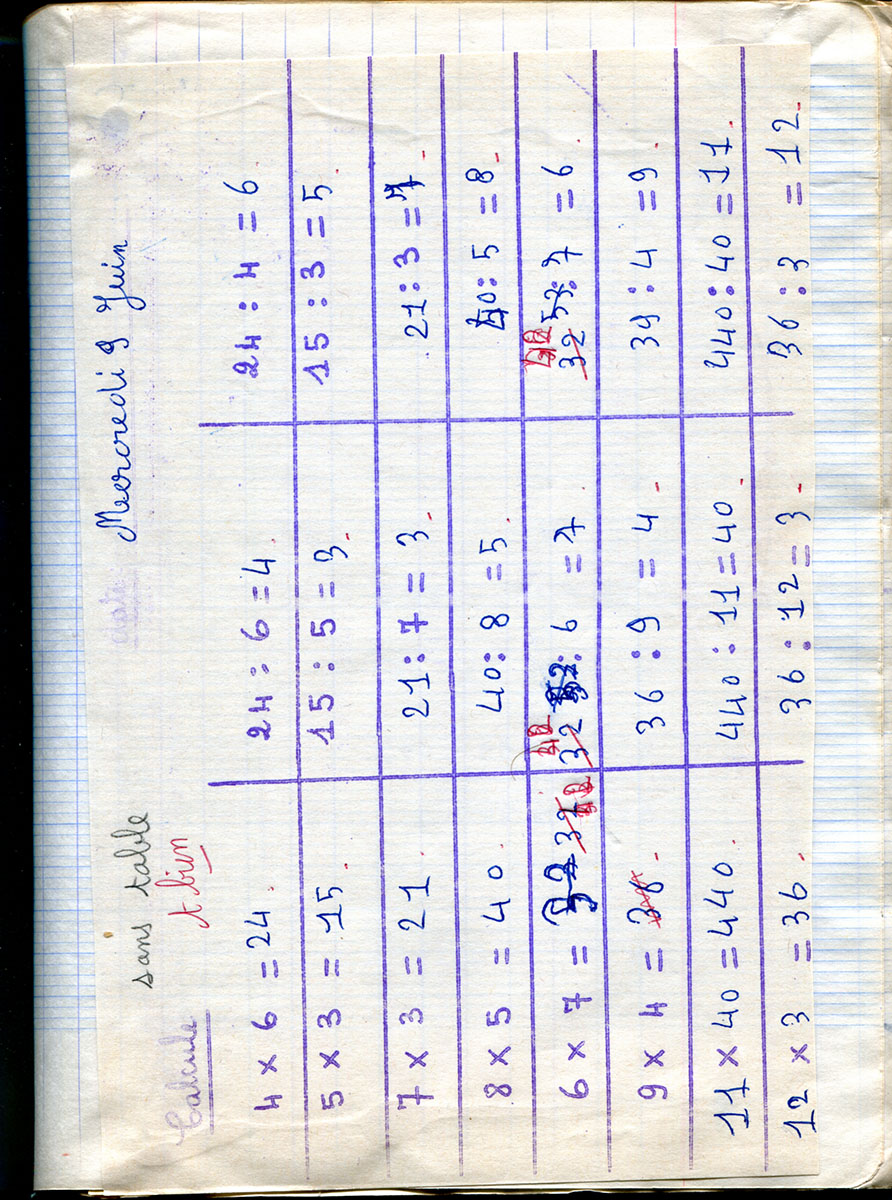 date Mercredi 9 Juin
sans table
Calcule t bien
4 × 6 = 24. 24 : 6 = 4. 24 : 4 = 6.
5 × 3 = 15. 15 : 5 = 3. 15 : 3 = 5.
7 × 3 = 21. 21 : 7 = 3. 21 : 3 = 7.
8 × 5 = 40. 40 : 8 = 5. 40 : 5 = 8.
42 42 42
6 × 7 = 32 32 : 6 = 7 32 52 : 7 = 6
9 × 4 = 36. 36 : 9 = 4. 39 : 4 = 9.
11 × 40 = 440. 440 : 11 = 40. 440 : 40 = 11.
12 × 3 = 36. 36 : 12 = 3. 36 : 3 = 12.